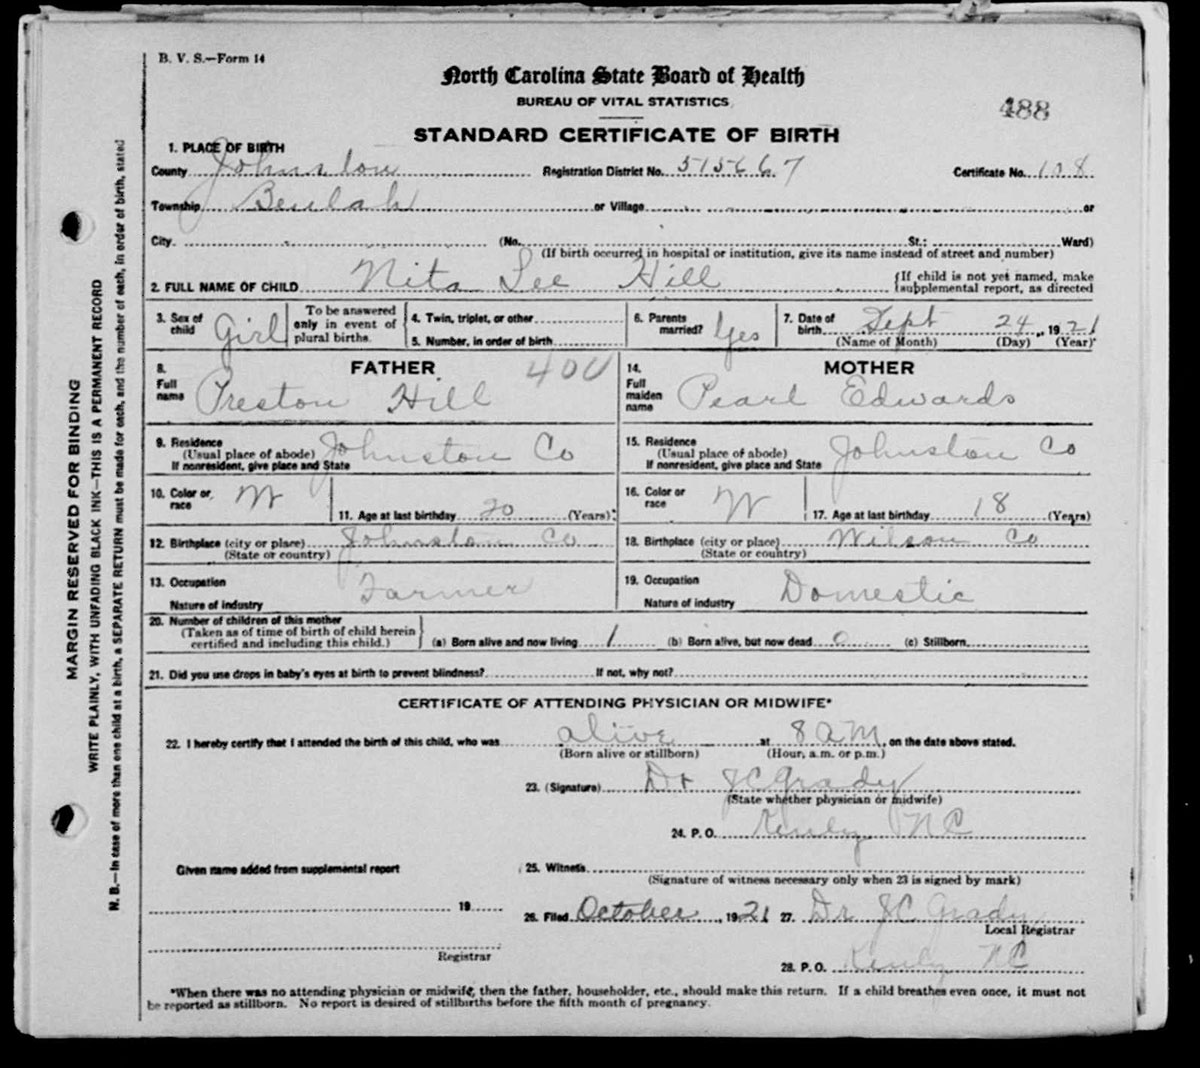 B. V. S.—Form 14
North Carolina State Board of Health
BUREAU OF VITAL STATISTICS
488
STANDARD CERTIFICATE OF BIRTH
1. PLACE OF BIRTH
County Johnston Registration District No. 515667 Certificate No. 108
Township Beulah or Village or
City. (No. St.; Ward)
(If birth occurred in hospital or institution, give its name instead of street and number)
2. FULL NAME OF CHILD Nita Lee Hill {If child is not yet named, make supplemental report, as directed
3. Sex of child Girl To be answered only in event of plural births. 4. Twin, triplet, or other 5. Number, in order of birth 6. Parents married? Yes 7. Date of birth Sept 24, 1921
(Name of Month) (Day) (Year)
FATHER 400
8. Full name Preston Hill
MOTHER
14. Full maiden name Pearl Edwards
9. Residence (Usual place of abode) Johnston Co
If nonresident, give place and State
15. Residence (Usual place of abode) Johnston Co
If nonresident, give place and State
10. Color or race W 11. Age at last birthday 20 (Years)
16. Color or race W 17. Age at last birthday 18 (Years)
12. Birthplace (city or place) Johnston Co
(State or country)
18. Birthplace (city or place) Wilson Co
(State or country)
13. Occupation
Nature of industry Farmer
19. Occupation
Nature of industry Domestic
20. Number of children of this mother
(Taken as of time of birth of child herein certified and including this child.) (a) Born alive and now living 1 (b) Born alive, but now dead 0 (c) Stillborn
21. Did you use drops in baby's eyes at birth to prevent blindness? If not, why not?
CERTIFICATE OF ATTENDING PHYSICIAN OR MIDWIFE*
22. I hereby certify that I attended the birth of this child, who was alive at 8 AM, on the date above stated.
(Born alive or stillborn) (Hour, a.m. or p.m.)
23. (Signature) Dr JC Grady
(State whether physician or midwife)
24. P. O. Kenly NC
Given name added from supplemental report 25. Witness
(Signature of witness necessary only when 23 is signed by mark)
19 26. Filed October, 1921 27. Dr JC Grady
Local Registrar
Registrar
28. P. O. Kenly NC
*When there was no attending physician or midwife, then the father, householder, etc., should make this return. If a child breathes even once, it must not
be reported as stillborn. No report is desired of stillbirths before the fifth month of pregnancy.
MARGIN RESERVED FOR BINDING
WRITE PLAINLY, WITH UNFADING BLACK INK—THIS IS A PERMANENT RECORD
N. B.—In case of more than one child at a birth, a SEPARATE RETURN must be made for each, and the number of each, in order of birth, stated